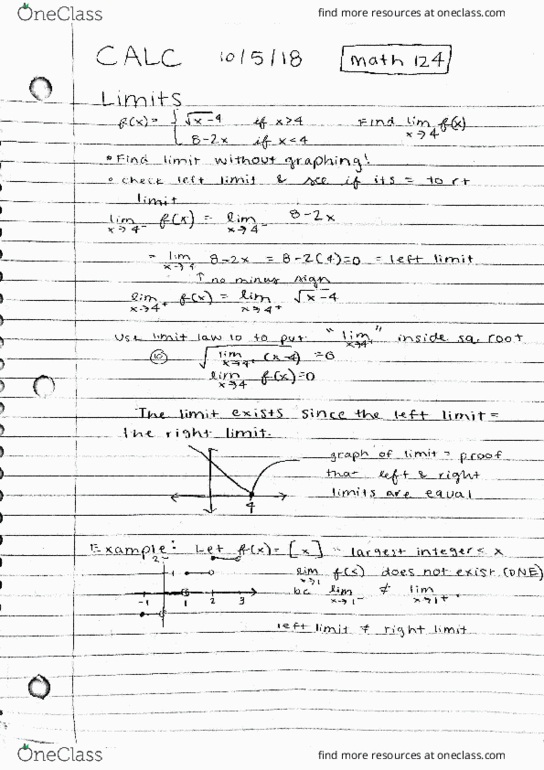 OneClass find more resources at oneclass.com
CALC 10/5/18 math 124
Limits
f(x)= { √x-4 if x>4 Find lim x→4 f(x)
8-2x if x<4
• Find limit without graphing!
• check left limit & see if its = to rt
limit
lim x→4⁻ f(x) = lim x→4⁻ 8-2x
= lim x→4 8-2x = 8-2(4)=0 = left limit
↑ no minus sign
lim x→4⁺ f(x) = lim x→4⁺ √x-4
Use limit law 10 to put "lim x→4⁺" inside sq root
⑩ √lim x→4⁺ (x-4) =0
lim x→4 f(x)=0
The limit exists since the left limit =
the right limit.
graph of limit = proof
that left & right
limits are equal
4
Example: Let f(x)=[x] = largest integer ≤ x
2
1
lim x→1 f(x) does not exist (DNE)
bc lim x→1⁻ ≠ lim x→1⁺.
-1 1 2 3
left limit ≠ right limit
OneClass find more resources at oneclass.com